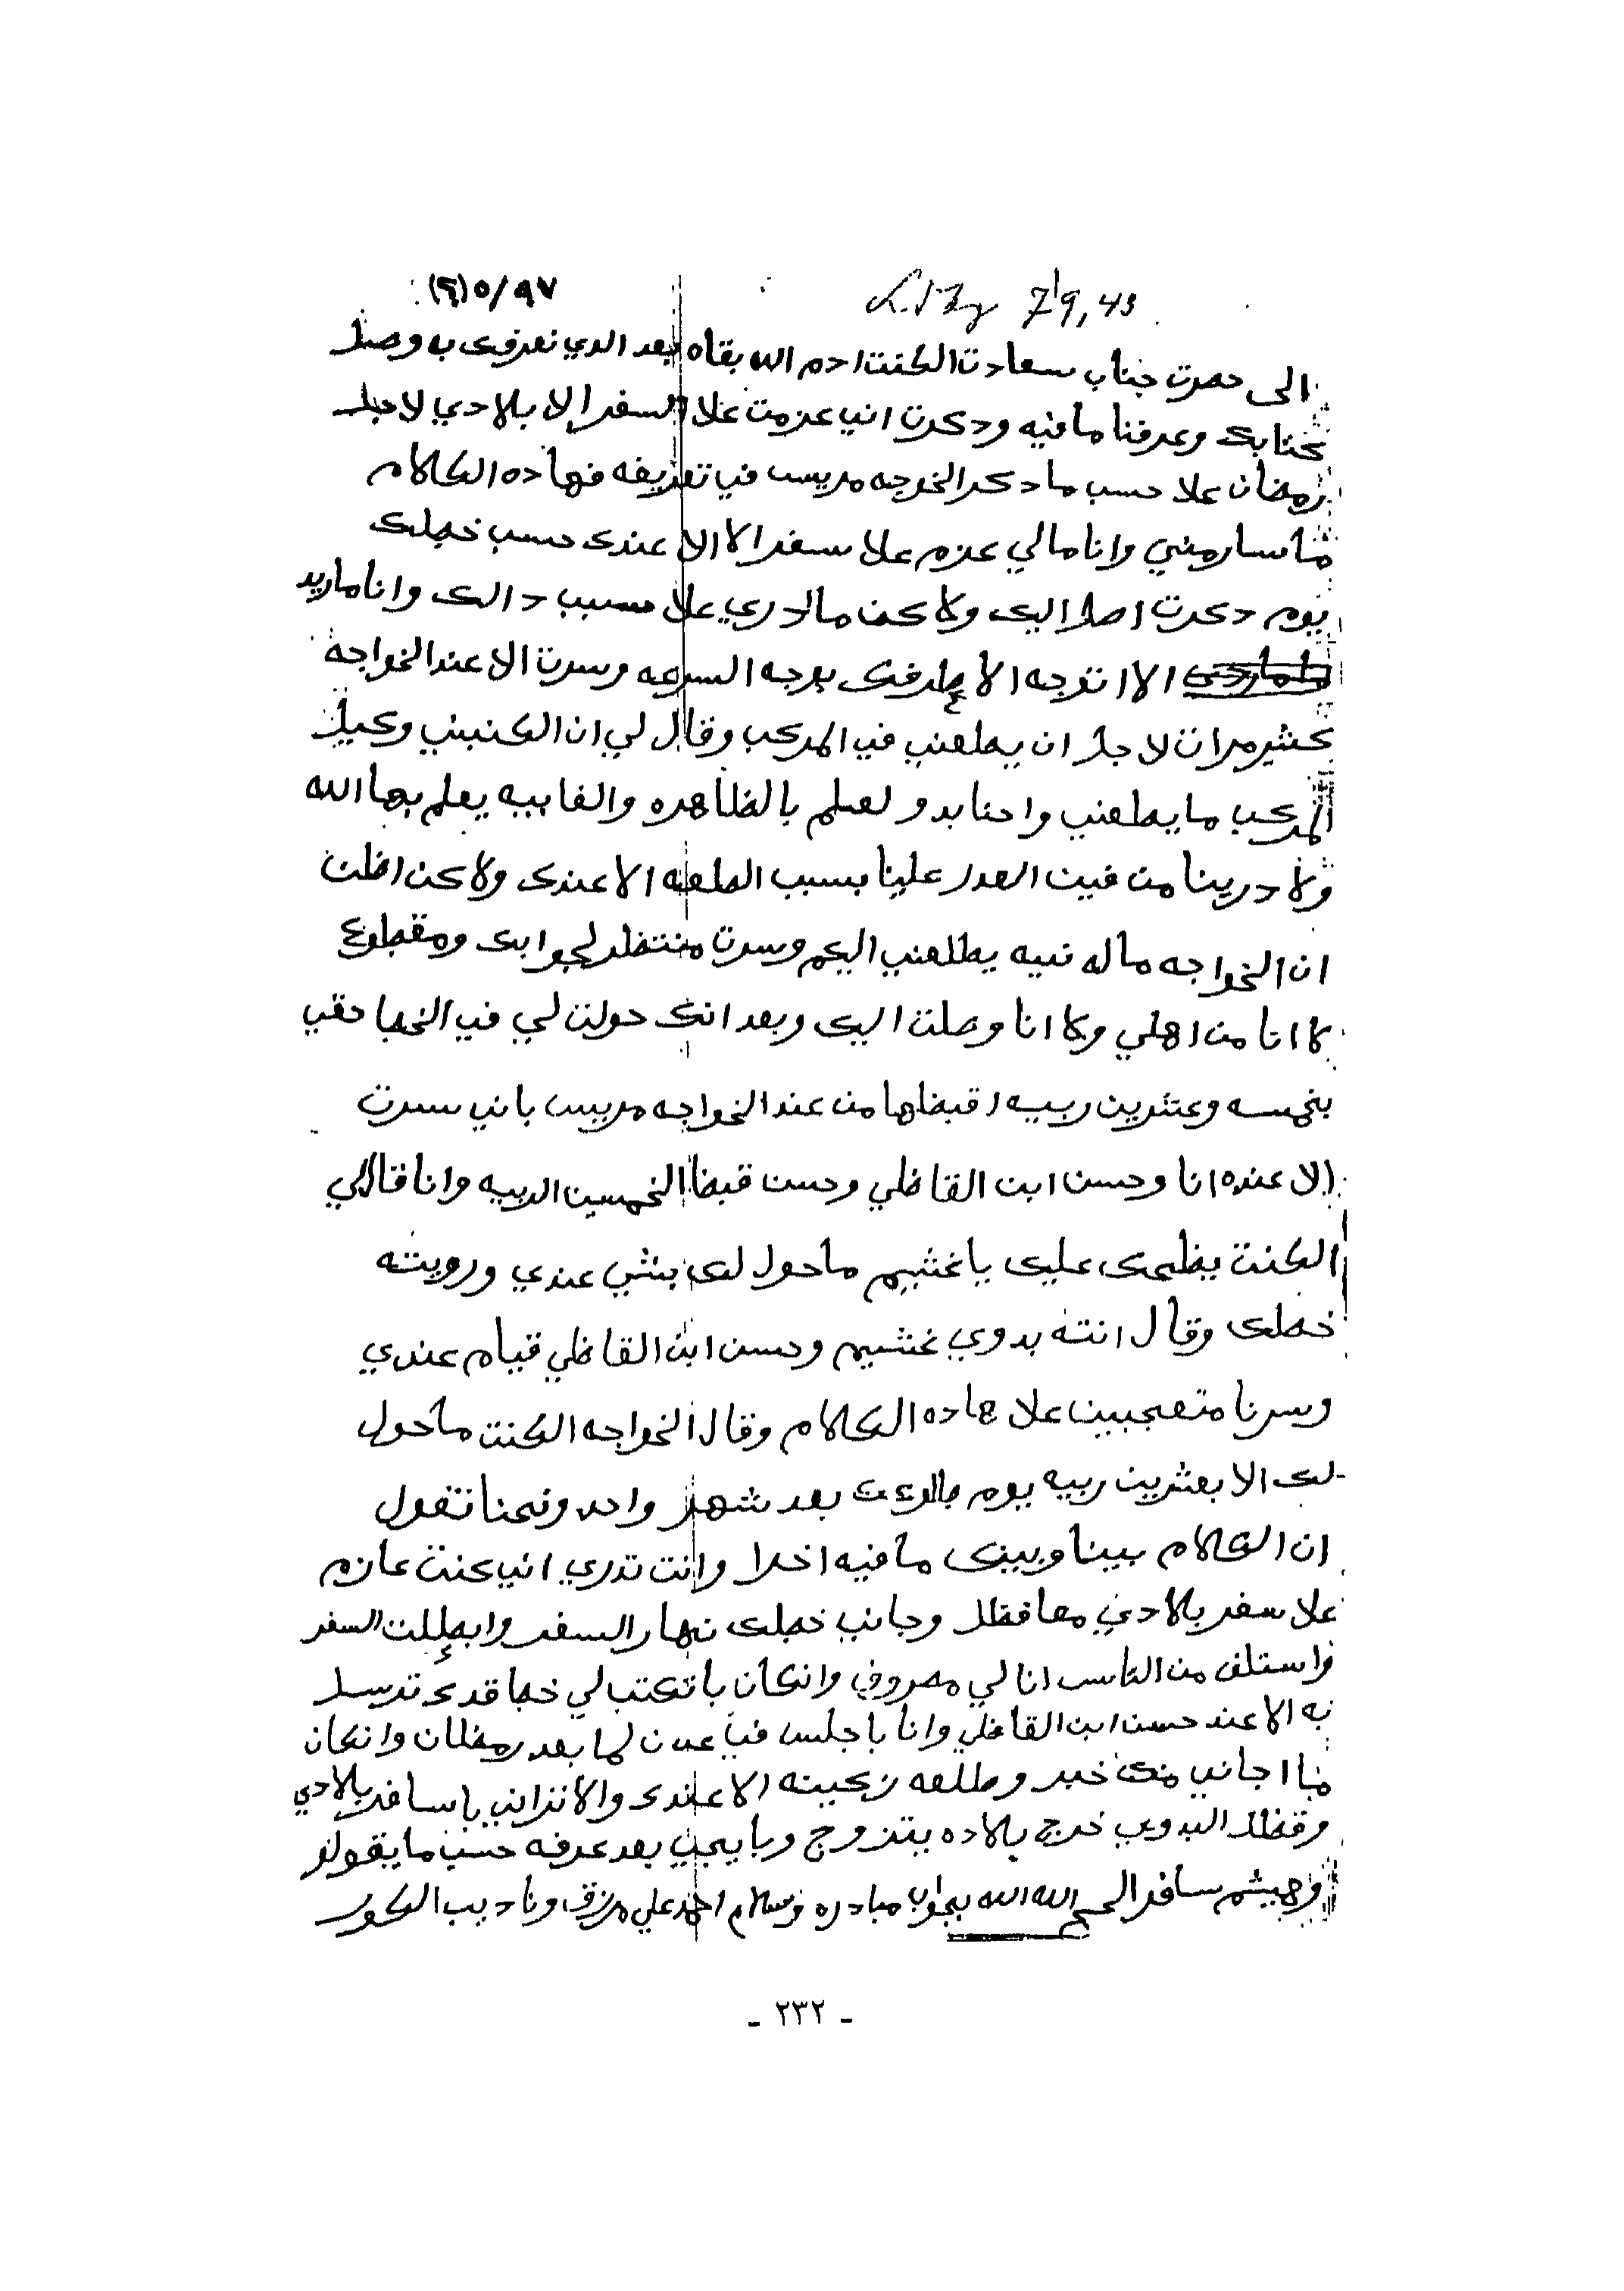 ٩٧/٥(٦)
79,43
الى حصرت جناب سعادت الكنت ادم الله بقاه بعد الدي نعرفك به وصل
كتابك وعرفنا مافيه ودكرت اني عزمت علا السفر إلا بلادي لاجل
رمضان علا حسب مادكر الخوجه مريس في تعريفه فهاده الكلام
ماسار مني وانا مالي عزم علا سفر الا الا عندك حسب خطك
يوم دكرت اصل اليك ولاكن مالدري علا سبب دالك وانا ماريد
الا اتوجه الا طرفك بوجه السرعه وسرت الا عند الخواجه
كثير مرات لاجل ان يطلعني في المركب وقال لي ان الكنبني وكيل
المركب مايطلعني واحنا بدو لعلم بالظاهره والغايبه يعلم بها الله
ولا درينا من فين العدر علينا بسبب الطلعه الا عندك ولاكن اظن
ان الخواجه ماله نيه يطلعني اليكم وسرت منتظر لجوابك ومقطوع
لا انا من اهلي ولا انا وصلت اليك وبعد انك حولت لي في الخط حقي
بخمسه وعشرين ربيه اقبضها من عند الخواجه مريس باني سرت
الا عنده انا وحسن ابن القاظي وحسن قبظ الخمسين الربيه وانا قالي
الكنت يظحك عليك ياغشيم ماحول لك بشي عندي ورويته
خطك وقال انته بدوي غشيم وحسن ابن القاظي قيام عندي
وسرنا متعجبين علا هاده الكلام وقال الخواجه الكنت ماحول
لك الا بعشرين ربيه يوم بعد شهر واحد ونحنا نقول
ان الكلام بينا وبينك مافيه اخلا وانت تدري اني كنت عازم
علا سفر بلادي معا فظل وجاني خطك نهار السفر وابطلت السفر
واستلف من الناس انا لي مصروفي وانكان باتكتب لي خط قدك ترسل
به الا عند حسن ابن القاظي وانا باجلس في عدن لما بعد رمظان وانكان
ما اجاني منك خبر وطلعه زكينه الا عندك والا نزاني باسافر بلادي
وقفظل البدوي خرج بلاده يتزوج وبايجي بعد عرفه حسب مايقول
وهيثم سافر الحج الله الله بجواب مبادره وسلام احمد علي مرزق وناديب الكور
ـ ٢٣٢ ـ